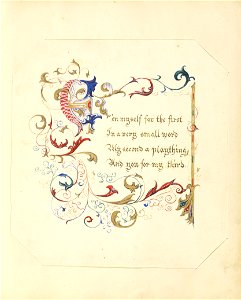 myself for the first
In a very small word
My second a plaything,
And you for my third.